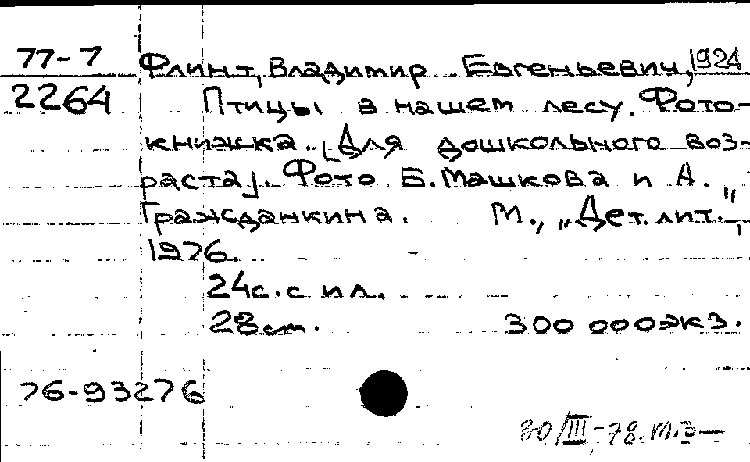 77-7 Флинт, Владимир Евгеньевич, 1924
2264 Птицы в нашем лесу. Фото-
книжка. [Для дошкольного воз-
раста]. Фото Б. Машкова и А.
Гражданкина. М., "Дет. лит.",
1976.
24с. с ил.
28 см. 300 000 экз.
76-93276
20/III-78.